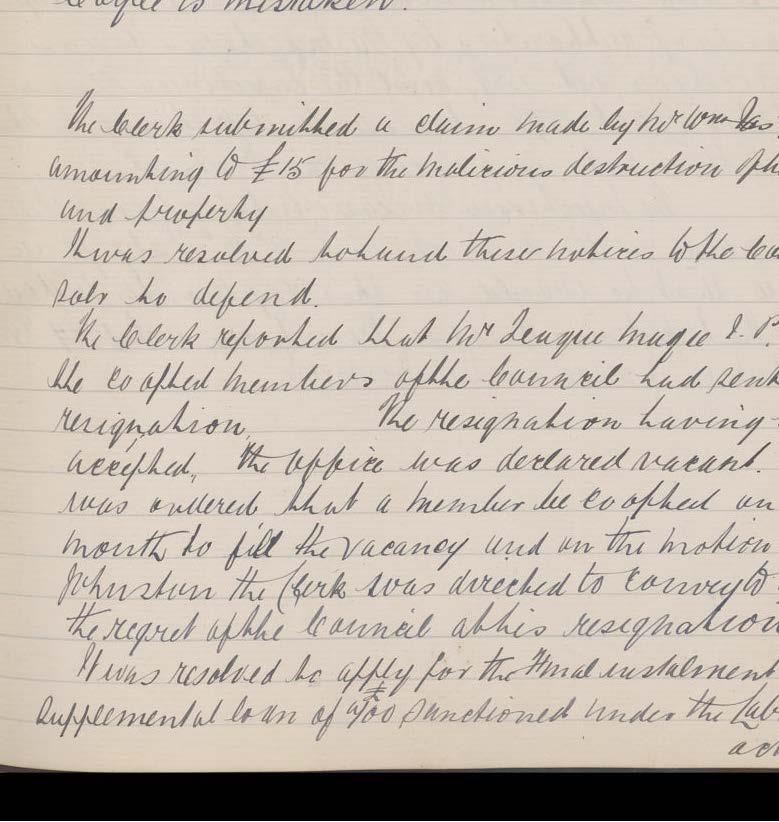 is mistaken.
The Clerk submitted a claim made by Mr Wm
amounting to £15 for the malicious destruction of
and property
It was resolved to hand these notices to the Co
solr to defend.
The Clerk reported that Mr League Magee J. P.
the coopted members of the Council had sent
resignation. The resignation having
accepted, the office was declared vacant.
was ordered that a member be coopted on
month to fill the vacancy and on the motion
Johnston the Clerk was directed to convey to
the regret of the Council at his resignation
It was resolved to apply for the final instalment
supplemental loan of sanctioned under the Lab
act